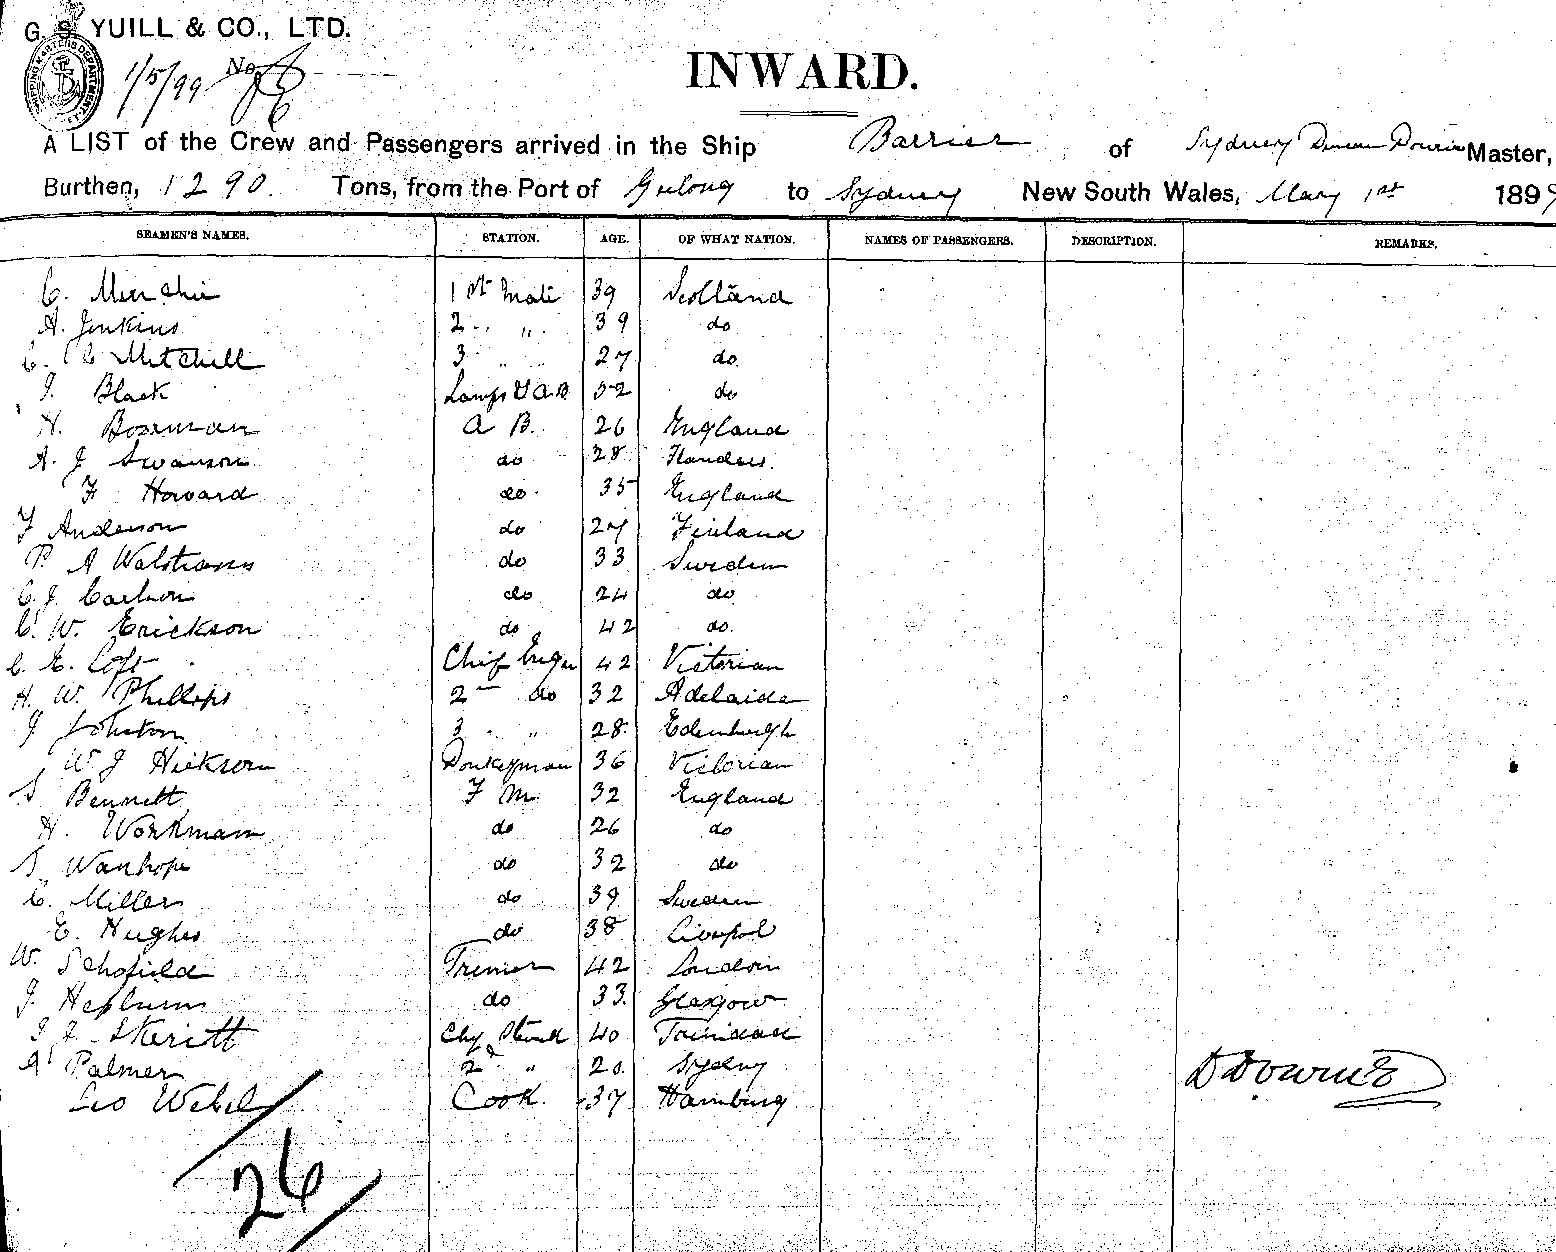 G. S. YUILL & CO., LTD.
1/5/99 No
INWARD.
A LIST of the Crew and Passengers arrived in the Ship Barrier of Sydney Duncan Downie Master,
Burthen, 1290. Tons, from the Port of Geelong to Sydney New South Wales, May 1st 1899
SEAMEN'S NAMES. STATION. AGE. OF WHAT NATION. NAMES OF PASSENGERS. DESCRIPTION. REMARKS.
C. Minchie 1st Mate 39 Scotland
A. Jenkins 2 " " 39 do
C. C Mitchell 3 " " 27 do
J. Black Lamps & A.B. 52 do
H. Boorman A B. 26 England
A. J Swanson do 28 Flanders.
F Howard do 35 England
F Anderson do 27 Finland
P. A Walstrams do 33 Sweden
C. J. Carlson do 24 do
C. W. Erickson do 42 do.
C. E. Loft Chief Engr 42 Victorian
H. W. Phillips 2 do 32 Adelaide
J Johnston 3 " " 28. Edenburgh
W J Hickson Donkeyman 36 Victorian
S Bennett F M. 32 England
H. Workman do 26 do
S Wanhope do 32 do
C. Miller do 39 Sweden
E. Hughes do 38 Liverpol
W. Schofield Trimer 42 London
J. Hepburn do 33. Glasgow
J. J. Skeritt Chf Steward 40 Trinidad
A Palmer 2 " 20. Sydeny
Leo Webel Cook. 37 Hamburg
D Downie
26